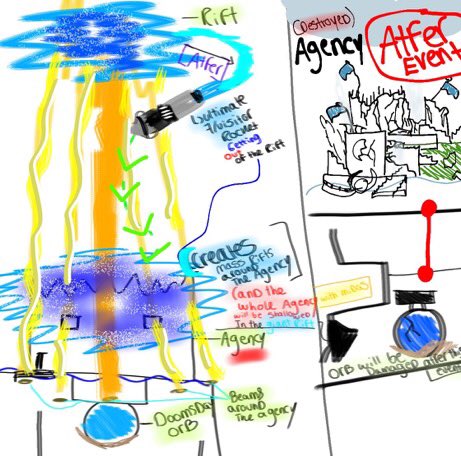 Rift
Atfer
Lultimate
7/visitor
Rocket
Coming
Out of the Rift
Creates
mass Rifts
around
The Agency
(and the
whole Agency
will be Shallowed)
In the giant Rift
Agency
Beams
around
The agency
Doomsday
orB
(Destroyed)
Agency
Atfer
EvenT
with midas
OrB will be
Damaged after this
event